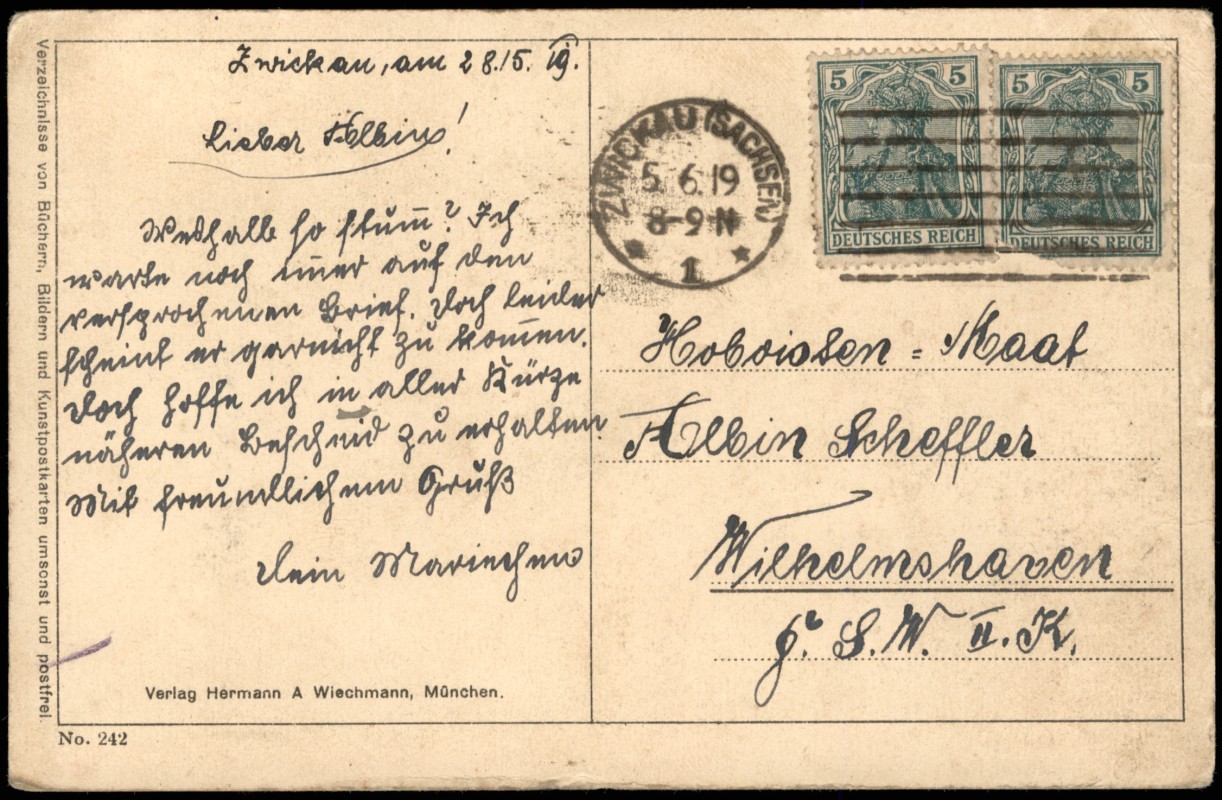 Zwickau, am 28.5. 19.
Lieber Albin!
Weshalb so stum̅? Ich
warte noch im̅er auf den
versprochenen Brief. Doch leider
scheint er garnicht zu kom̅en.
Doch hoffe ich in aller Kürze
näheren Bescheid zu erhalten.
Mit freundlichem Gruß
Dein Mariechen
Verlag Hermann A Wiechmann, München.
No. 242
Verzeichnisse von Büchern, Bildern und Kunstpostkarten umsonst und postfrei.
ZWICKAU (SACHSEN)
5.6.19
8-9 N
* 1 *
5 5
DEUTSCHES REICH
5 5
DEUTSCHES REICH
Hoboisten = Maat
Albin Scheffler
Wilhelmshaven
S. W. II. K.